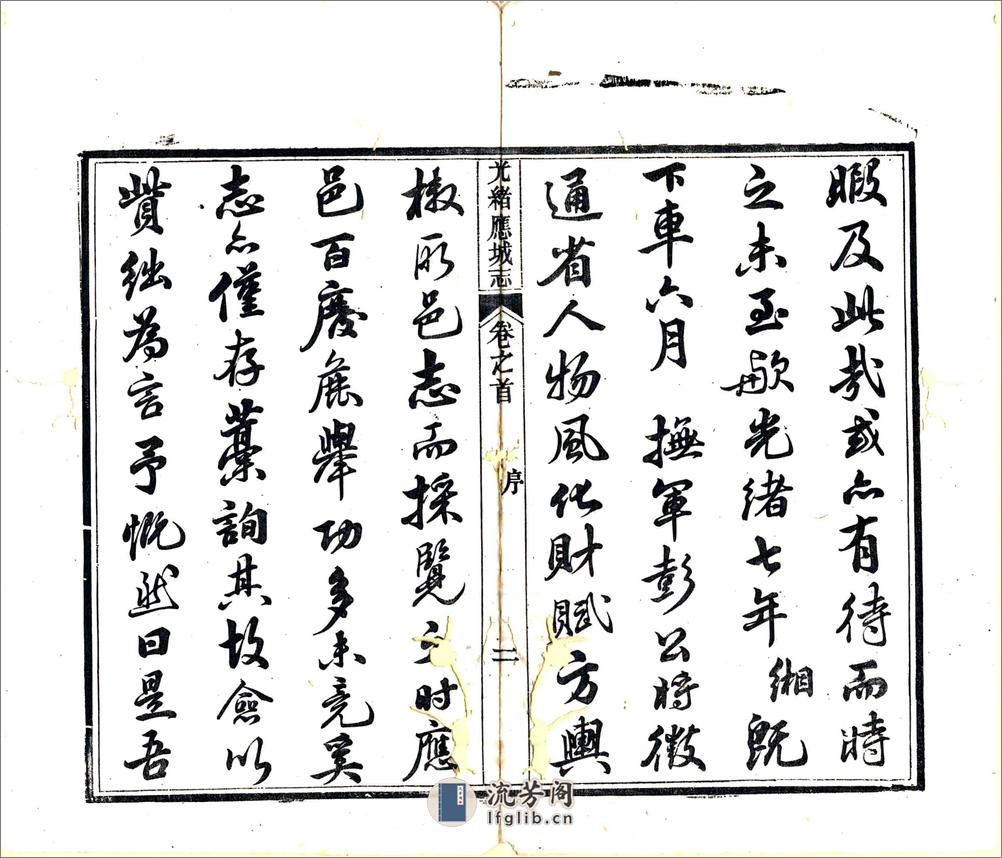 暇及此哉或亦有待而時
之未至歟光緒七年緗既
下車六月撫軍彭公時徵
通省人物風化財賦方輿
光緒應城志 卷之首 序 二
檄取邑志而採覽之时應
邑百廢俱舉功多未竟奚
志亦僅存藁詢其故僉以
貲絀為言予慨然曰是吾
流芳阁
lfglib.cn